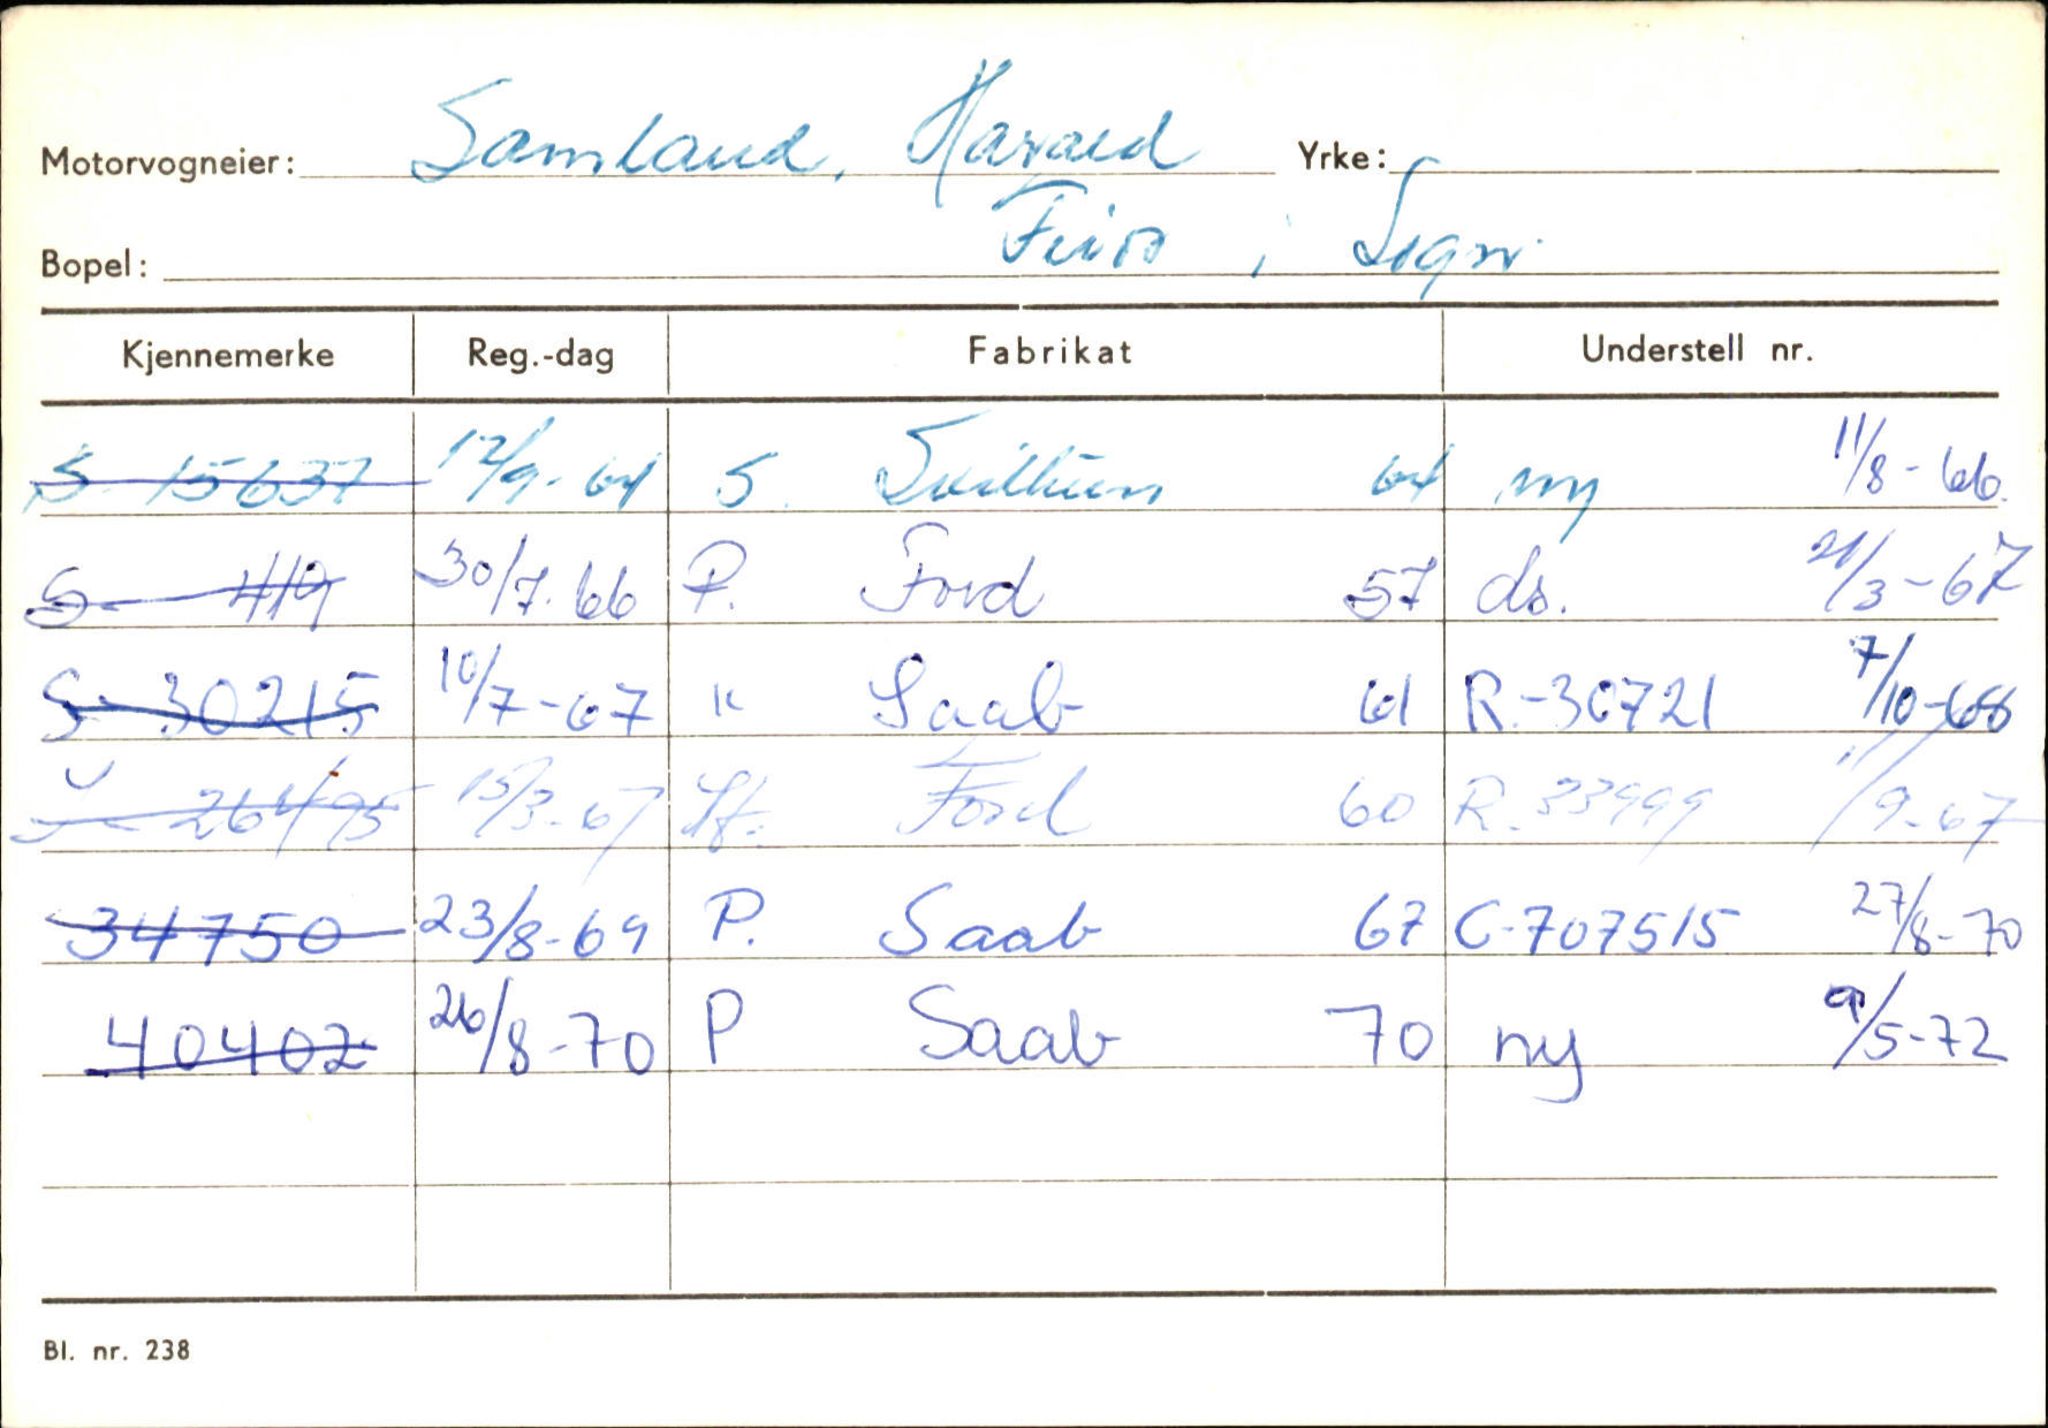 Motorvogneier: Samland, Harald Yrke:
Bopel: Feios i Sogn
Kjennemerke Reg.-dag Fabrikat Understell nr.
S 15637 12/9-64 S. Svithun 64 ny 11/8-66.
S- 419 30/7.66 P. Ford 57 ds. 21/3-67
S- 30215 10/7-67 " Saab 61 R.-30721 7/10-68
S- 26495 15/3-67 St. Ford 60 R. 33999 11/9-67
34750 23/8-69 P. Saab 67 C-707515 27/8-70
40402 26/8-70 P Saab 70 ny 9/5-72
Bl. nr. 238